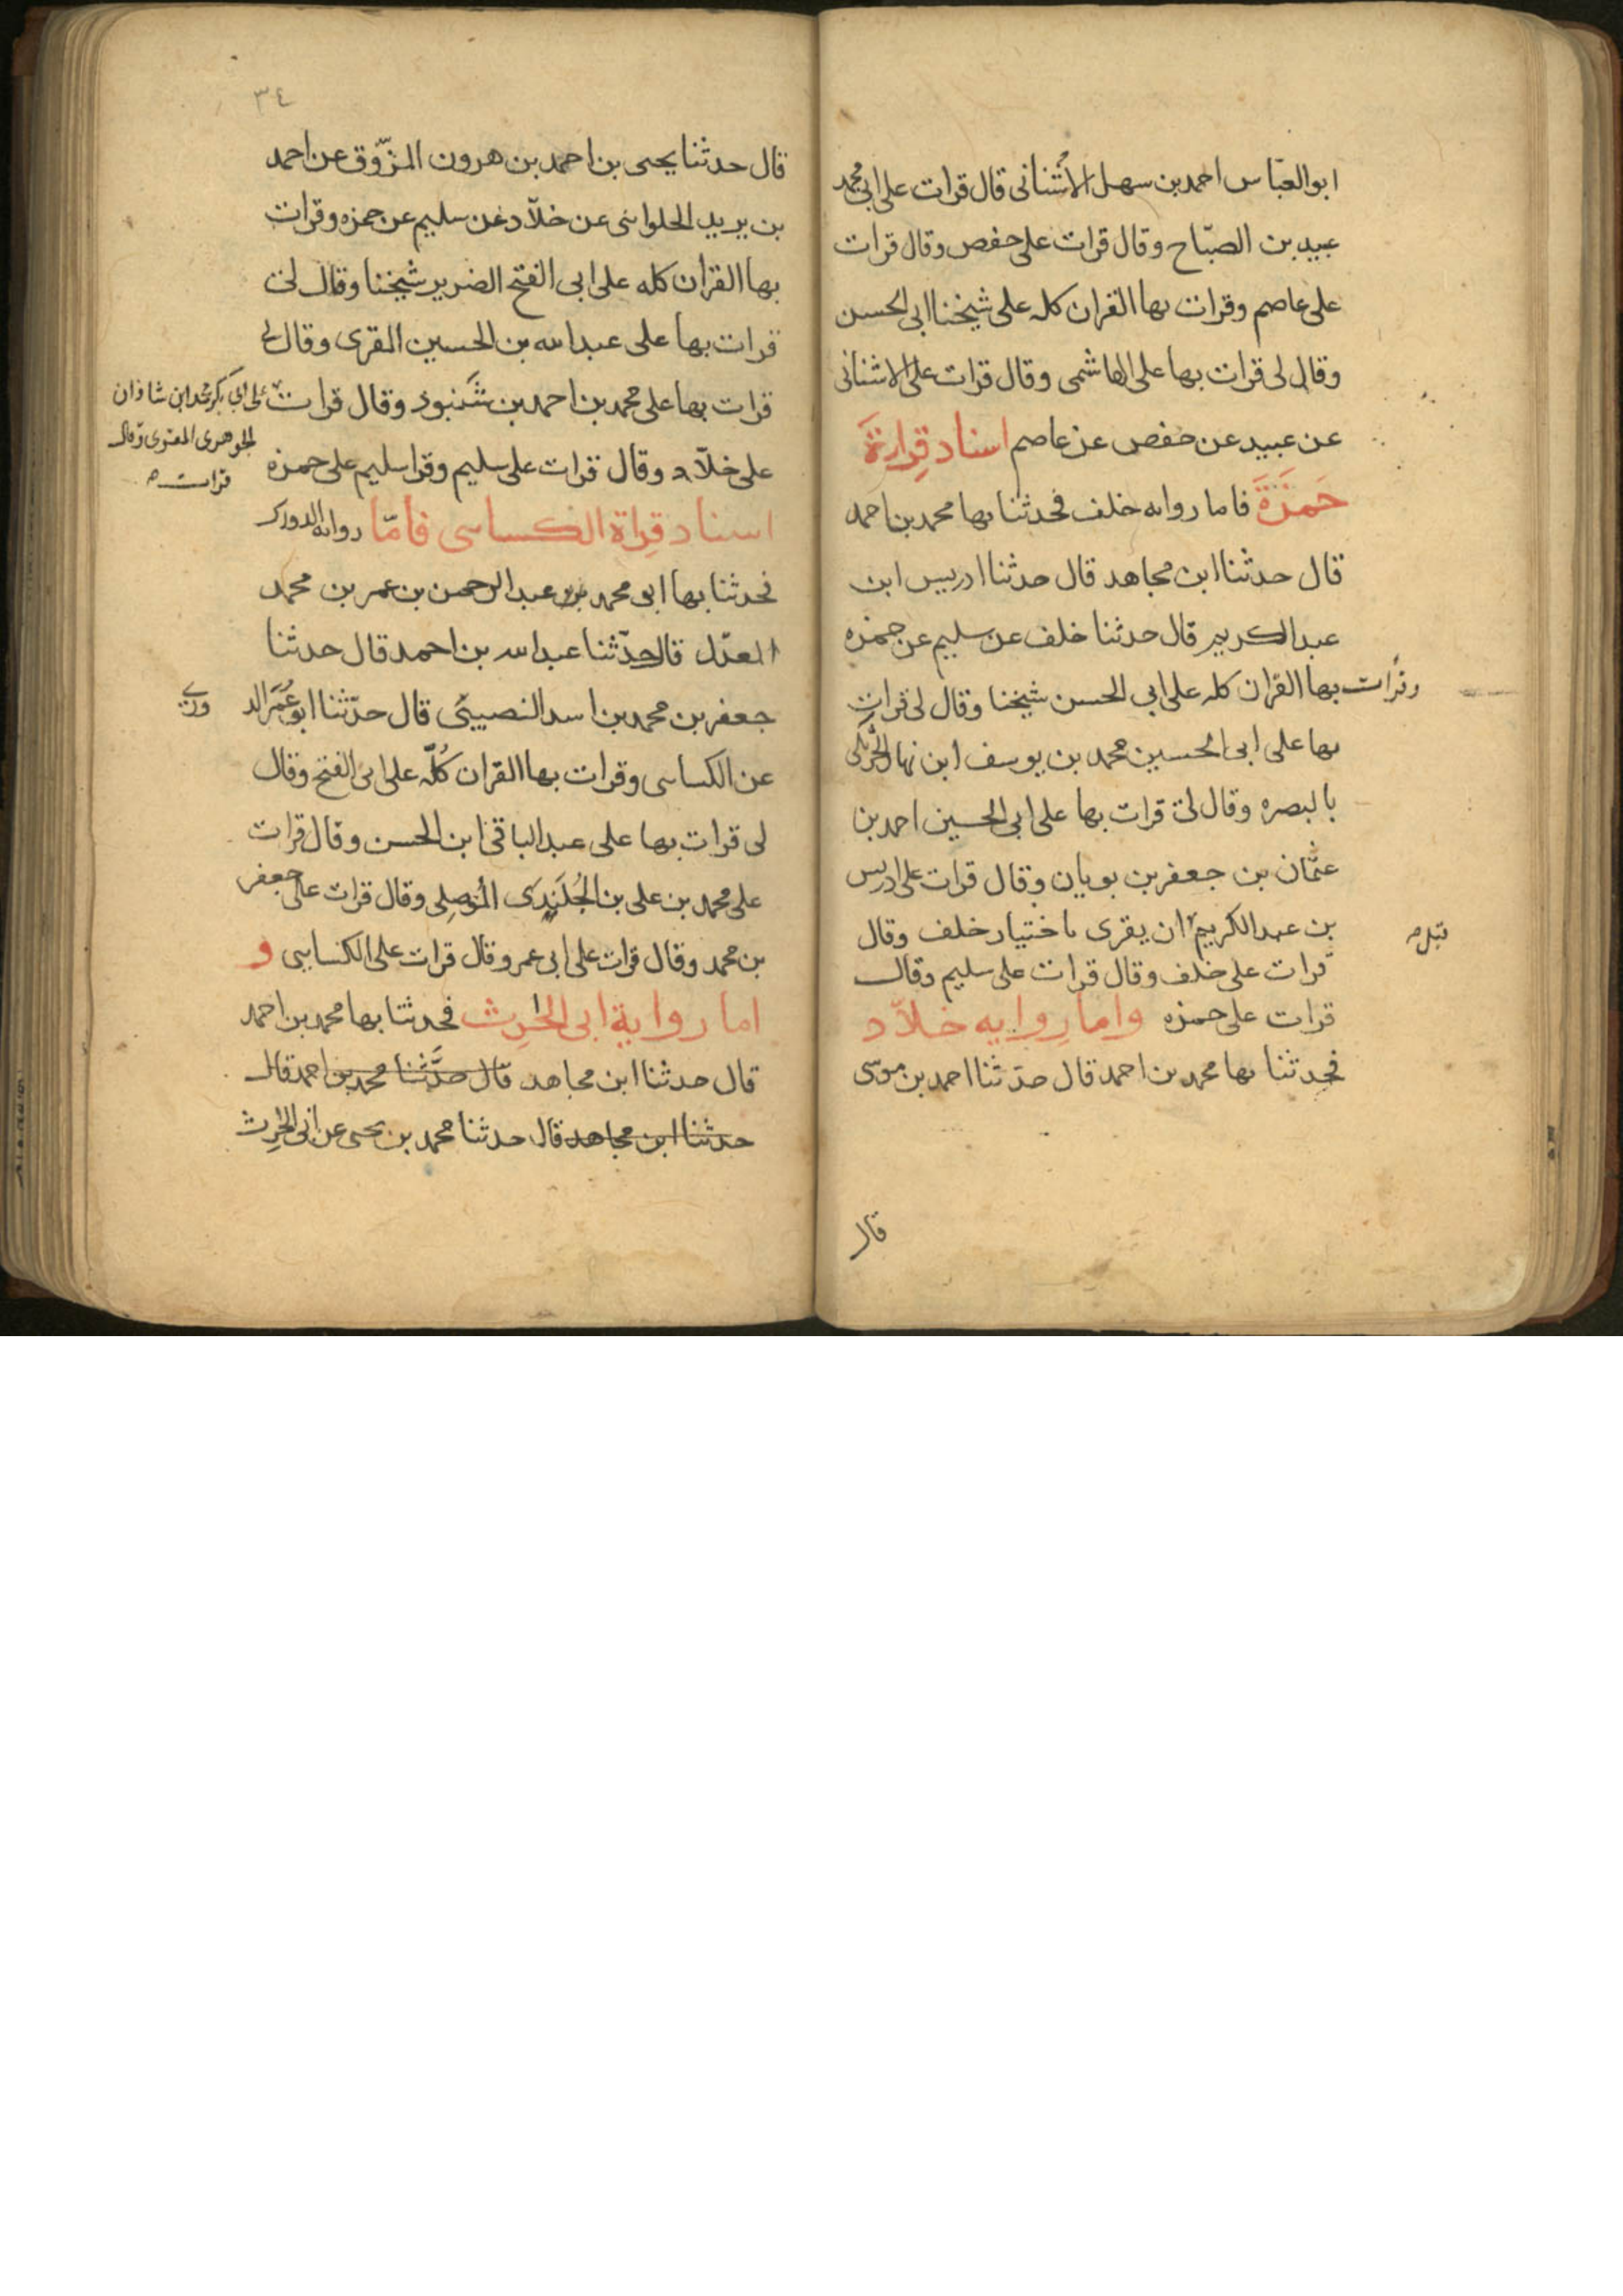 ابو العبّاس احمد بن سهل الاشنانى قال قرات على ابى محمد
عبيد بن الصبّاح وقال قرات على حفص وقال قرات
على عاصم وقرات بها القران كله على شيخنا ابى الحسن
وقال لى قرات بها على الهاشمى وقال قرات على الاشنانى
عن عبيد عن حفص عن عاصم اسناد قِراءة
حَمزَةَ فاما روايه خلف فحدثنا بها محمد بن احمد
قال حدثنا ابن مجاهد قال حدثنا ادريس ابن
عبد الكريم قال حدثنا خلف عن سليم عن حمزه
وقرات بها القران كله على ابى الحسن شيخنا وقال لى قرات
بها على ابى الحسين محمد بن يوسف ابن نهار الحرتكى
بالبصره وقال لى قرات بها على ابى الحسين احمد بن
عثمان بن جعفر بن بويان وقال قرات على ادريس
بن عبد الكريم ان يقرى باختيار خلف وقال
قبل
قرات على خلف وقال قرات على سليم وقال
قرات على حمزه واما رواية خلاّد
فحدثنا بها محمد بن احمد قال حدّثنا احمد بن موسى
قال
٣٤
قال حدثنا يحيى بن احمد بن هرون المزّوق عن احمد
بن يريد الحلوانى عن خلاّد عن سليم عن حمزه وقرات
بها القران كله على ابى الفتح الضرير شيخنا وقال لى
قرات بها على عبد الله بن الحسين المقرى وقال لى
قرات بها على محمد بن احمد بن شَنَبود وقال قرات
على ابى بكر محمد ابن شاذان
الجوهرى المقرى وقال
قرات
على خلاّد وقال قرات على سليم وقرا سليم على حمزه
اسناد قِراة الكساىى فأمّا روايه الدورى
فحدثنا بها ابو محمد بن عبد الرحمن بن عمر بن محمد
المعدّل قال حدّثنا عبد الله بن احمد قال حدثنا
جعفر بن محمد بن اسد النصيبىّ قال حدّثنا ابو عُمَر الد
ورى
عن الكساىى وقرات بها القران كُلّه على ابى الفتح وقال
لى قرات بها على عبد الباقى ابن الحسن وقال قرات
على محمد بن على بن الجُلَندَى المُوصِلى وقال قرات على جعفر
بن محمد وقال قرات على ابى عمر وقال قرات على الكساىى و
اما رواية ابى الحرث فحدثنا بها محمد بن احمد
قال حدثنا ابن مجاهد قال حدَّثنا محمد بن احمد قال
حدثنا ابن مجاهد قال حدثنا محمد بن يحيى عن ابى الحرث